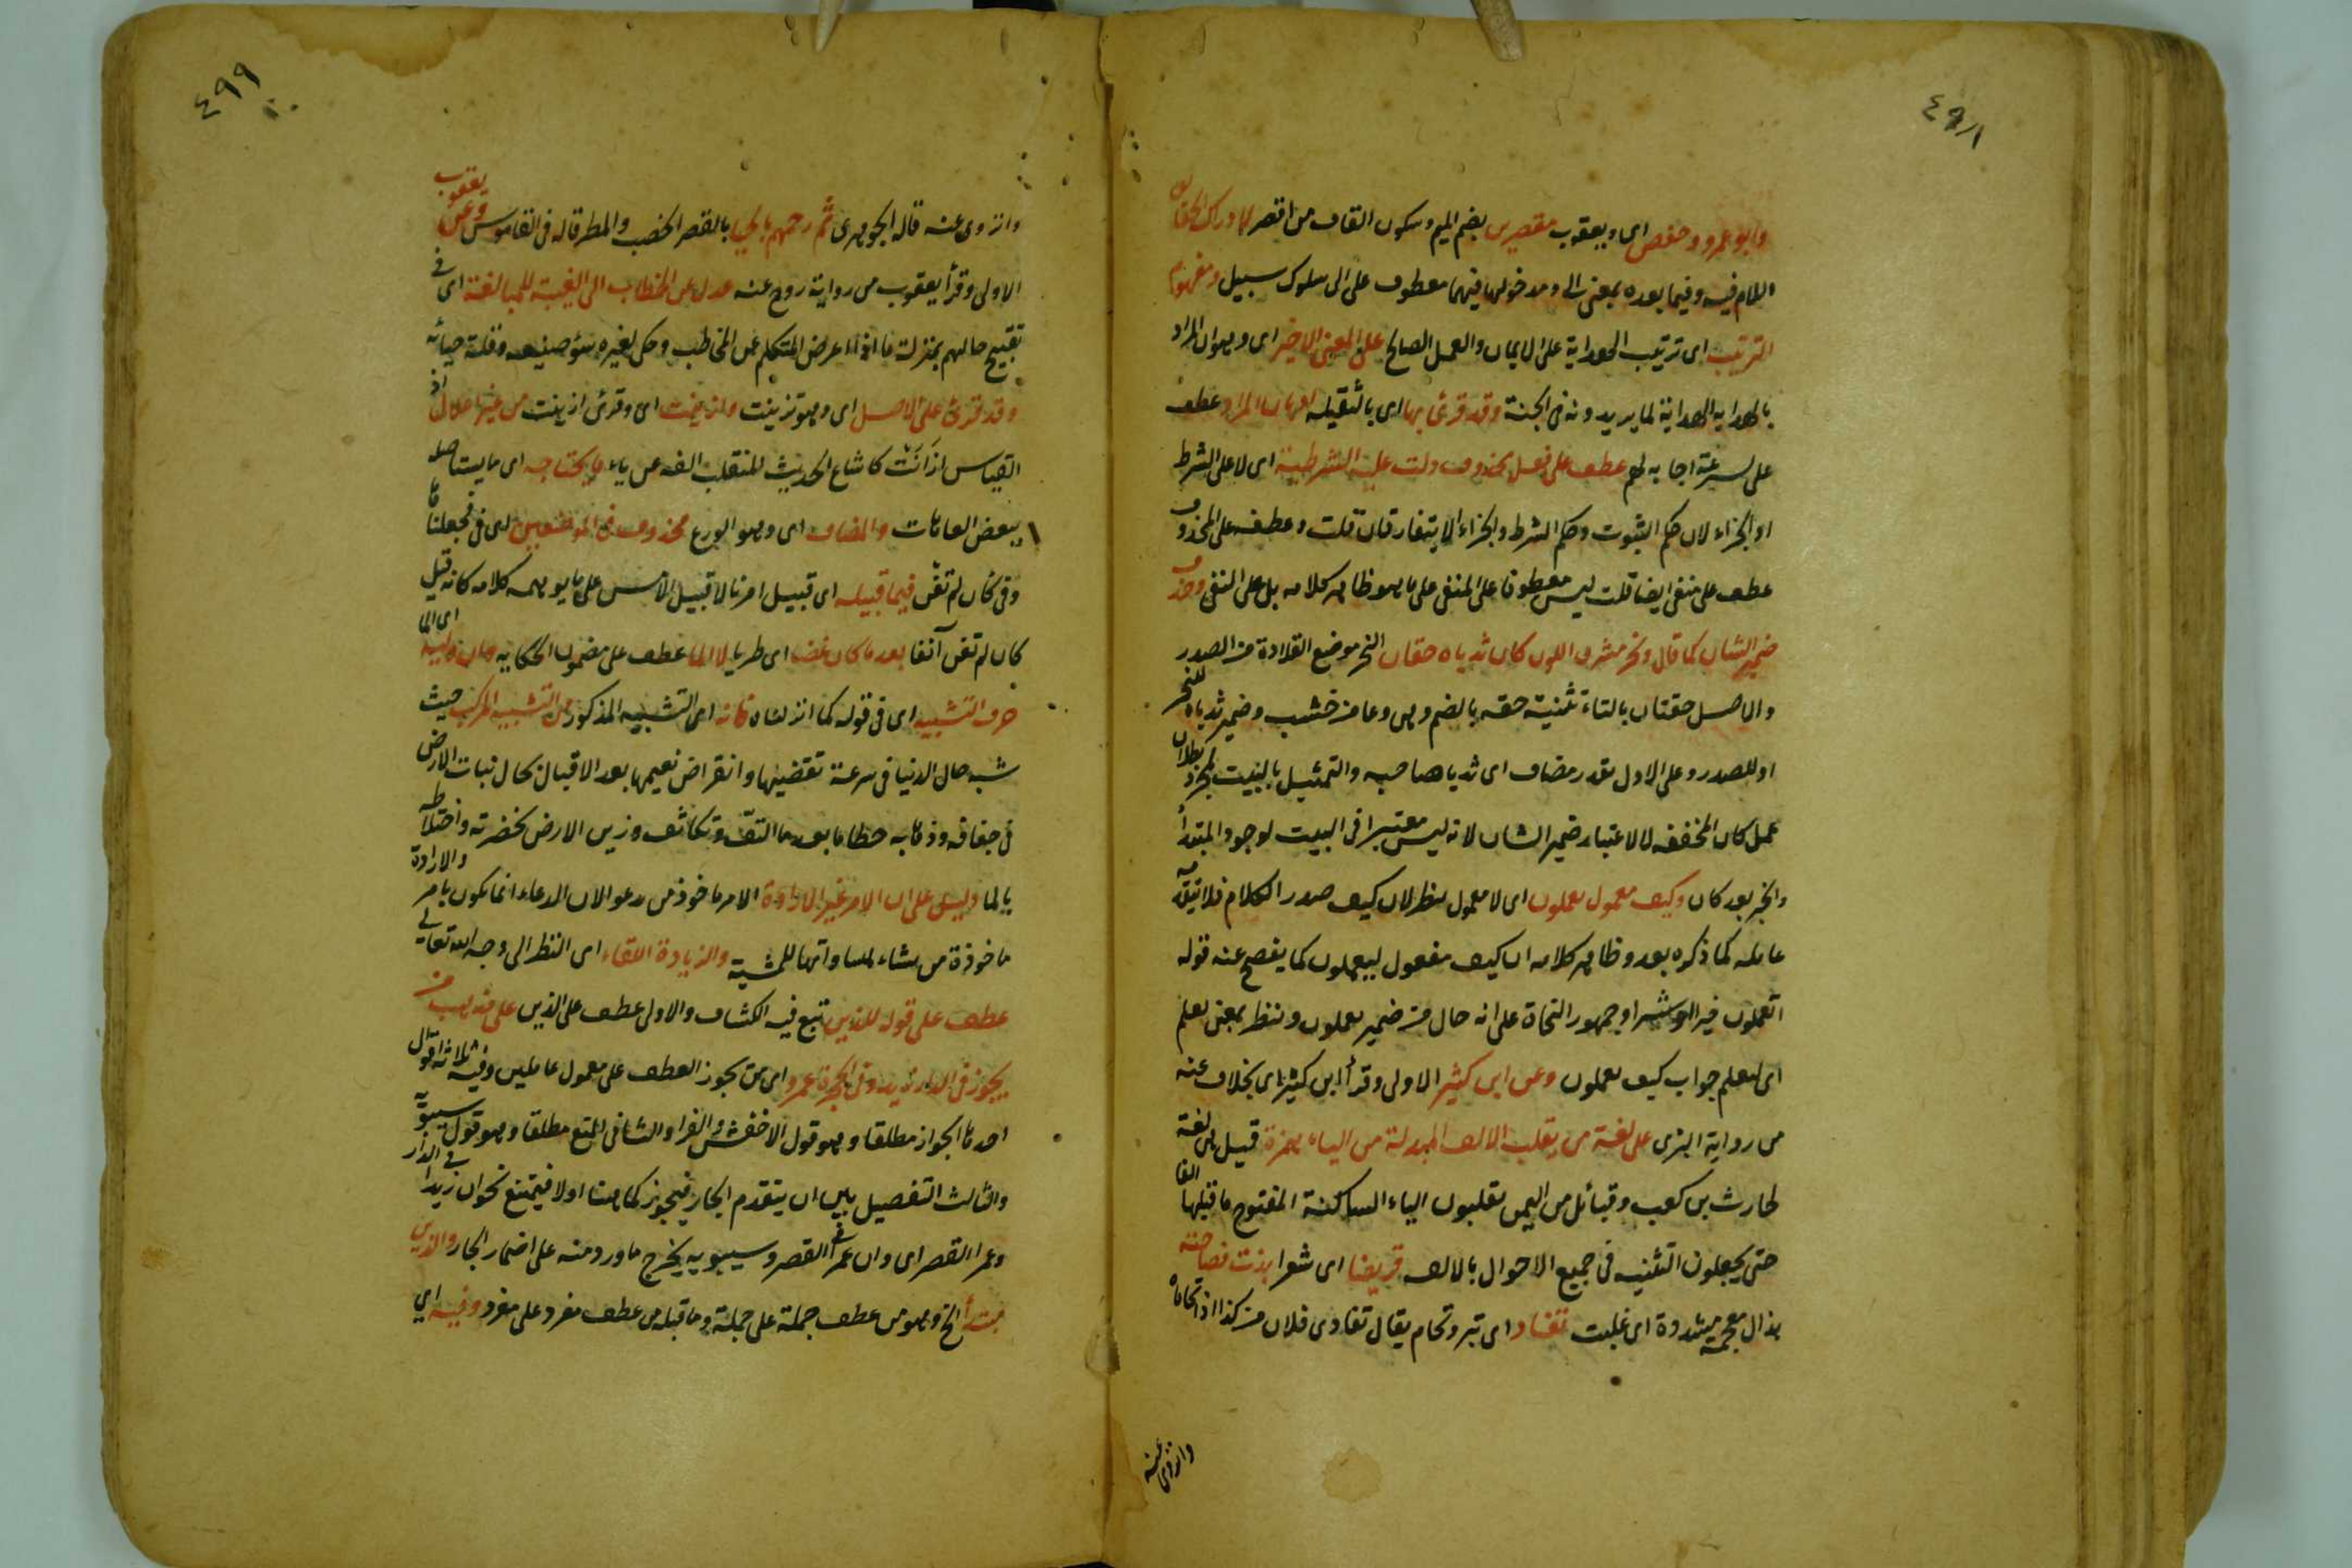 ٤٩٨
وابو عمرو وحفص اى ويعقوب مقصرين بضم الميم وسكون القاف من اقصر لادراك الحقايق
اللام فيه وفيما بعده بمعنى الى ومدخولها فيهما معطوف على الى سلوك سبيل ومفهوم
الترتيب اى ترتيب الهداية على الايمان والعمل الصالح على المعنى الاخير اى وهو ان المراد
بالهداية الهداية لما يريدونه فى الجنة وقد قرئ بها اى بالثقيلة المراد عطف
على سرعة اجابه لهم عطف على فعل محذوف دلت عليه الشرطية اى لا على الشرط
او الجزاء لان حكم الثبوت وحكم الشرط والجزاء الا يتفارقان قلت وعطفه على المحذوف
عطف على منفى ايضا قلت ليس معطوفا على المنفى على ما هو ظاهر كلامه بل على النفى وحذف
ضمير الشان كما قال ونحر مشرق اللون كان ثدياه حقان النحر موضع القلادة من الصدر
والاصل حقتان بالتاء تثنية حقه بالضم وهى وعا من خشب وضمير ثدياه للنحر
او للصدر وعلى الاول يقدر مضاف اى ثديا صاحبه والتمثيل بالبيت لمجرد بطلان
عمل كان المخففه لا لاعتبار ضمير الشان لانه ليس معتبرا فى البيت لوجود المبتدأ
والخبر بعد كان وكيف معمول يعملون اى لا معمول ينظر لان كيف صدر الكلام فلا يتقدمه
عامله كما ذكره بعد وظاهر كلامه ان كيف مفعول ليعملون كما يفصح عنه قوله
اتعملون خيرا او شرا وجمهور النحاة على انه حال من ضمير يعملون وننظر بمعنى نعلم
اى لنعلم جواب كيف يعملون وعن ابن كثير الاولى وقرأ ابن كثير اى بخلاف عنه
من رواية البزى على لغة من يقلب الالف المبدلة من الياء همزة قيل هى لغة
لحارث بن كعب وقبائل من اليمن يقلبون الياء الساكنة المفتوح ما قبلها الفا
حتى يجعلون التثنيه فى جميع الاحوال بالالف قريضا اى شعرا بذت فصاحته
بذال معجمة مشددة اى غلبت تفاد اى تبر وتحام يقال تفادى فلان من كذا اذا تحاماه
وانزوى عنه
٤٩٩
وانزوى عنه قاله الجوهرى ثم رحمهم بالحيا بالقصر الخصب والمطر قاله فى القاموس وعن يعقوب
الاولى وقرأ يعقوب من رواية روح عنه عدل عن الخطاب الى الغيبة للمبالغة اى فى
تقبيح حالهم بمنزلة ما اذا اعرض المتكلم عن المخاطب وحكى لغيره سوء صنيعه وقلة حيائه
وقد قرئ على الاصل اى وهو تزينت وازينت اى وقرئ ازينت من غير اعلال اذ
القياس ازانت كما شاع الحديث للمنقلب الفه عن ياء ما يحتاجه اى ما يستاصله
ببعض العاهات والمضاف اى وهو الزرع محذوف فى الموضعين اى فى فجعلناها
وفى كان لم تغن فيما قبيله اى قبيل امرنا لا قبيل الامس على ما يوهمه كلامه كانه قيل
كان لم تغن آنفا بعد ما كان غضا اى طريا لا الما عطف على مضمون الحكايه وان وليه اى الما
حرف التشبيه اى فى قوله كما انزلناه فانه اى التشبيه المذكور من التشبيه المركب حيث
شبه حال الدنيا فى سرعة تقضيها وانقراض نعيمها بعد الاقبال بحال نبات الارض
فى جفافه وذهابه حطاما بعد ما التف وتكاثف وزين الارض بخضرته واختلاطه
بالما وليس على ان الامر غير الارادة الامر ماخوذ من يدعو لان الدعاء انما يكون بامر والارادة
ماخوذة من يشاء لمساواتها للمشية والزيادة اللقاء اى النظر الى وجه الله تعالى
عطف على قوله للذين تبع فيه الكشاف والاولى عطف على الذين على مذهب من
يجوز فى الدار زيد وفى الحجرة عمرو اى من يجوز العطف على معمول عاملين وفيه ثلاثة اقوال
احدها الجواز مطلقا وهو قول الاخفش والفراء والثانى المنع مطلقا وهو قول سيبويه
والثالث التفصيل بين ان يتقدم الجار فيجوز كما هنا اولا فيمتنع نحو ان زيدا فى الدار
وعمرا القصر اى وان عمرا فى القصر وسيبويه يخرج ما ورد منه على اضمار الجار والذين
مبتدأ الخ وهو من عطف جملة على جملة وما قبله من عطف مفرد على مفرد وفيه اى